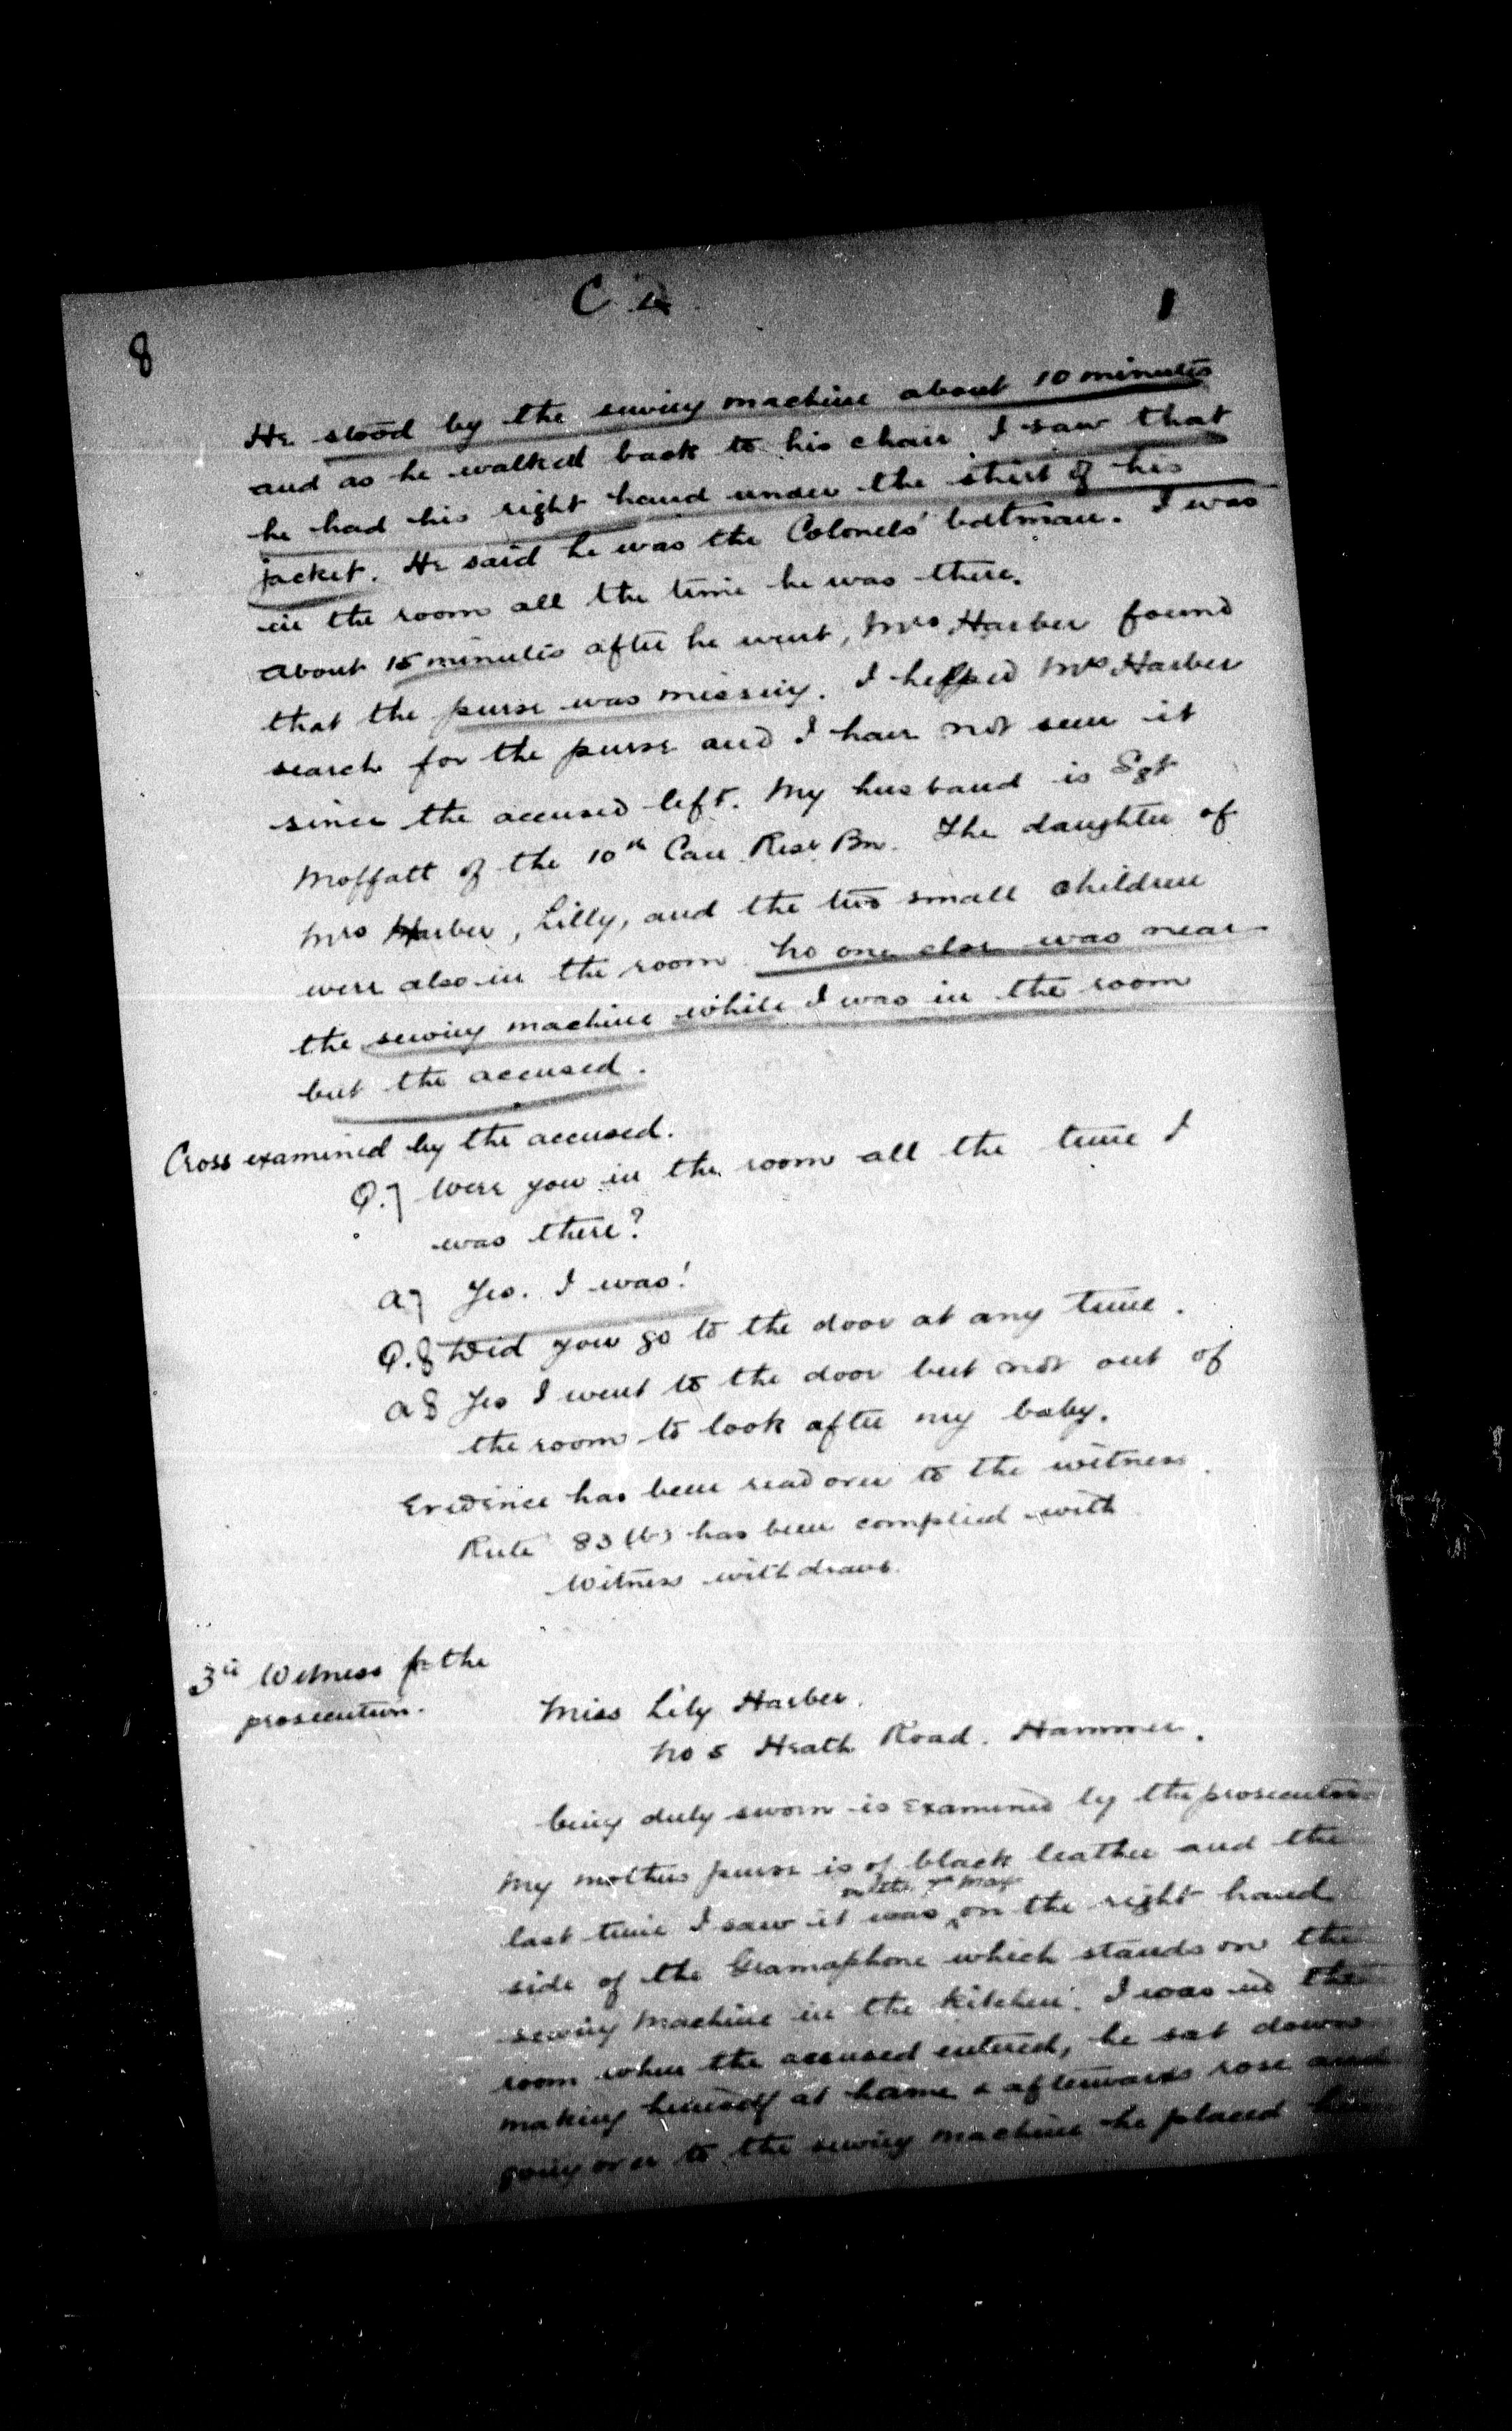 8
C 4
He stood by the sewing machine about 10 minutes
and as he walked back to his chair I saw that
he had his right hand under the skirt of his
jacket. He said he was the Colonels' batman. I was
in the room all the time he was there.
About 15 minutes after he went, Mrs Harber found
that the purse was missing. I helped Mrs Harber
search for the purse and I have not seen it
since the accused left. My husband is Sgt
Moffatt of the 10th Can. Resr. Bn. The daughter of
Mrs Harber, Lilly, and the two small children
were also in the room. No one else was near
the sewing machine while I was in the room
but the accused.
Cross examined by the accused.
Q.7 Were you in the room all the time I
was there?
A7 Yes. I was!
Q.8 Did you go to the door at any time.
A8 Yes I went to the door but not out of
the room to look after my baby.
Evidence has been read over to the witness.
Rule 83 (b) has been complied with
Witness withdraws.
3rd Witness for the
prosecution.
Miss Lily Harber.
No 5 Heath Road. Hammer.
being duly sworn is examined by the prosecutor
My mothers purse is of black leather and the
last time I saw it was on the right hand
side of the Gramaphone which stands on the
sewing machine in the kitchen. I was in the
room when the accused entered, he sat down
making himself at home & afterwards rose and
going over to the sewing machine he placed